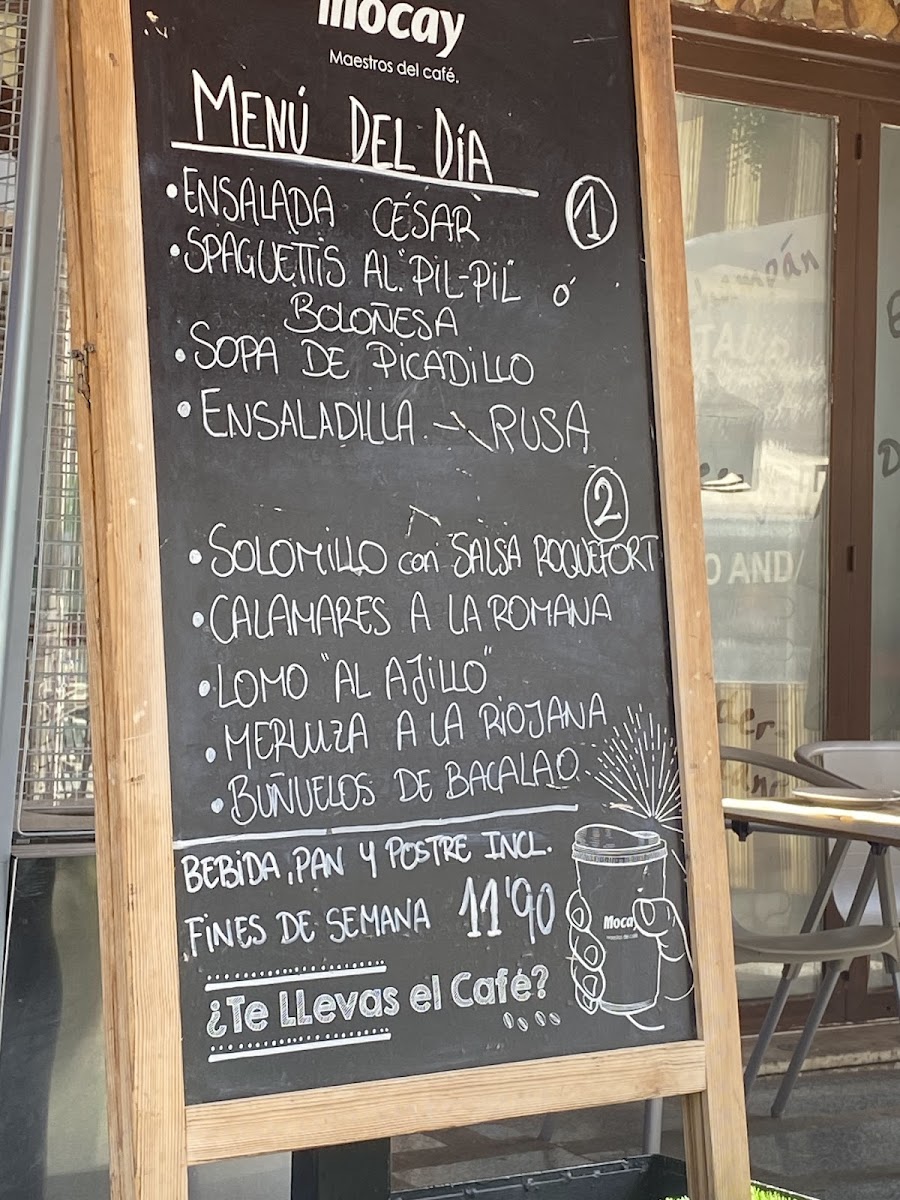 mocay
Maestros del café.
MENÚ DEL DÍA
①
• ENSALADA CÉSAR
• SPAGUETTIS AL "PIL-PIL" Ó
BOLOÑESA
• SOPA DE PICADILLO
• ENSALADILLA → RUSA
②
• SOLOMILLO con SALSA ROQUEFORT
• CALAMARES A LA ROMANA
• LOMO "AL AJILLO"
• MERLUZA A LA RIOJANA
• BUÑUELOS DE BACALAO
BEBIDA, PAN Y POSTRE INCL.
FINES DE SEMANA 11'90
¿Te LLevas el Café?